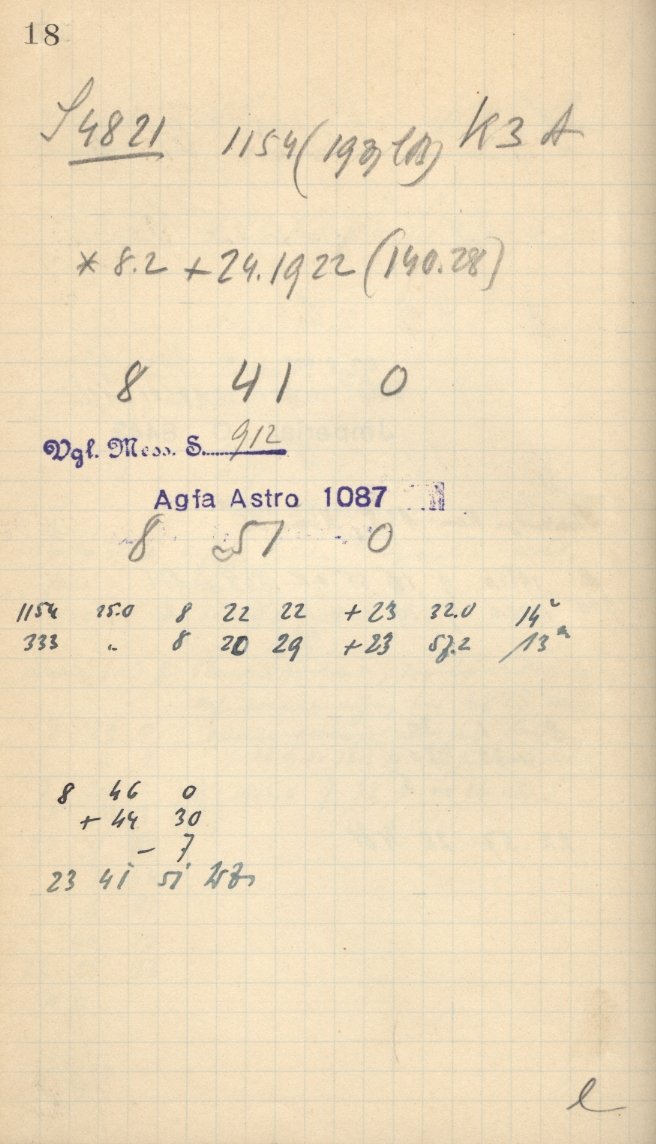 18
S4821 1154 (1931 ) K3 A
* 8.2 +24.1922 (140.28)
8 41 0
Vgl. Mess. S. 912
Agfa Astro 1087
8 51 0
1154 25.0 8 22 22 +23 32.0 14
333 " 8 20 29 +23 57.2 13
8 46 0
+ 44 30
- 7
23 41 51